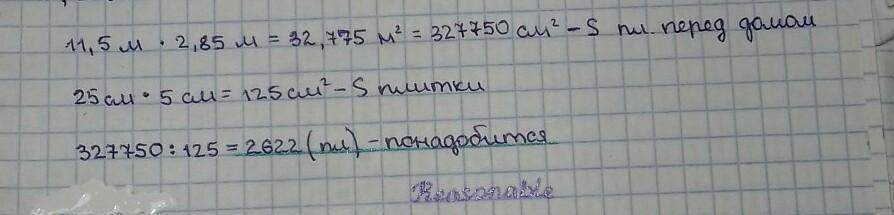 11,5 м · 2,85 м = 32,775 м² = 327750 см² – S пл. перед домом
25 см · 5 см = 125 см² – S плитки
327750 : 125 = 2622 (пл) – понадобится
Reasonable